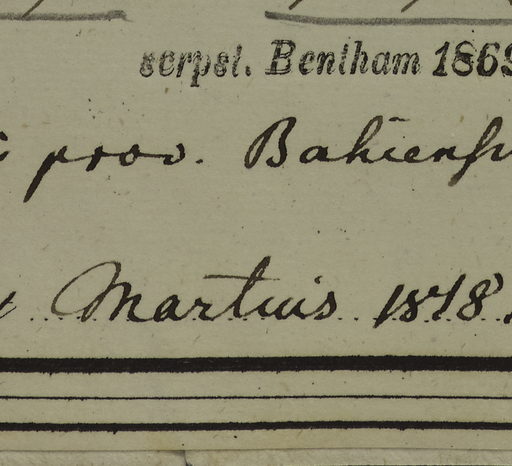 scrpst. Bentham 1869
prov. Bahiens
Martius 1818.